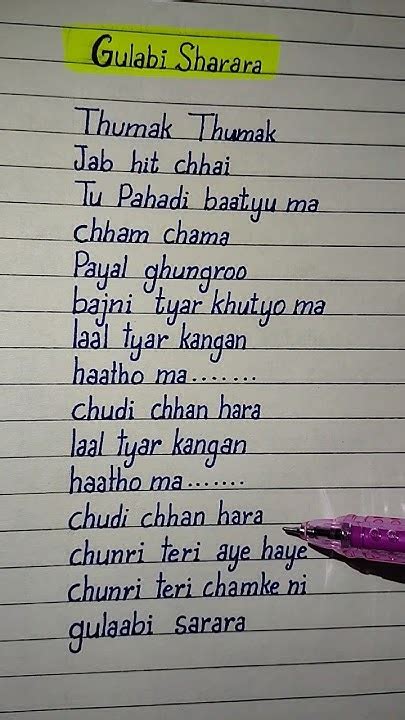 Gulabi Sharara
Thumak Thumak
Jab hit chhai
Tu Pahadi baatyu ma
chham chama
Payal ghungroo
bajni tyar khutyo ma
laal tyar kangan
haatho ma........
chudi chhan hara
laal tyar kangan
haatho ma.......
chudi chhan hara
chunri teri aye haye
chunri teri chamke ni
gulaabi sarara